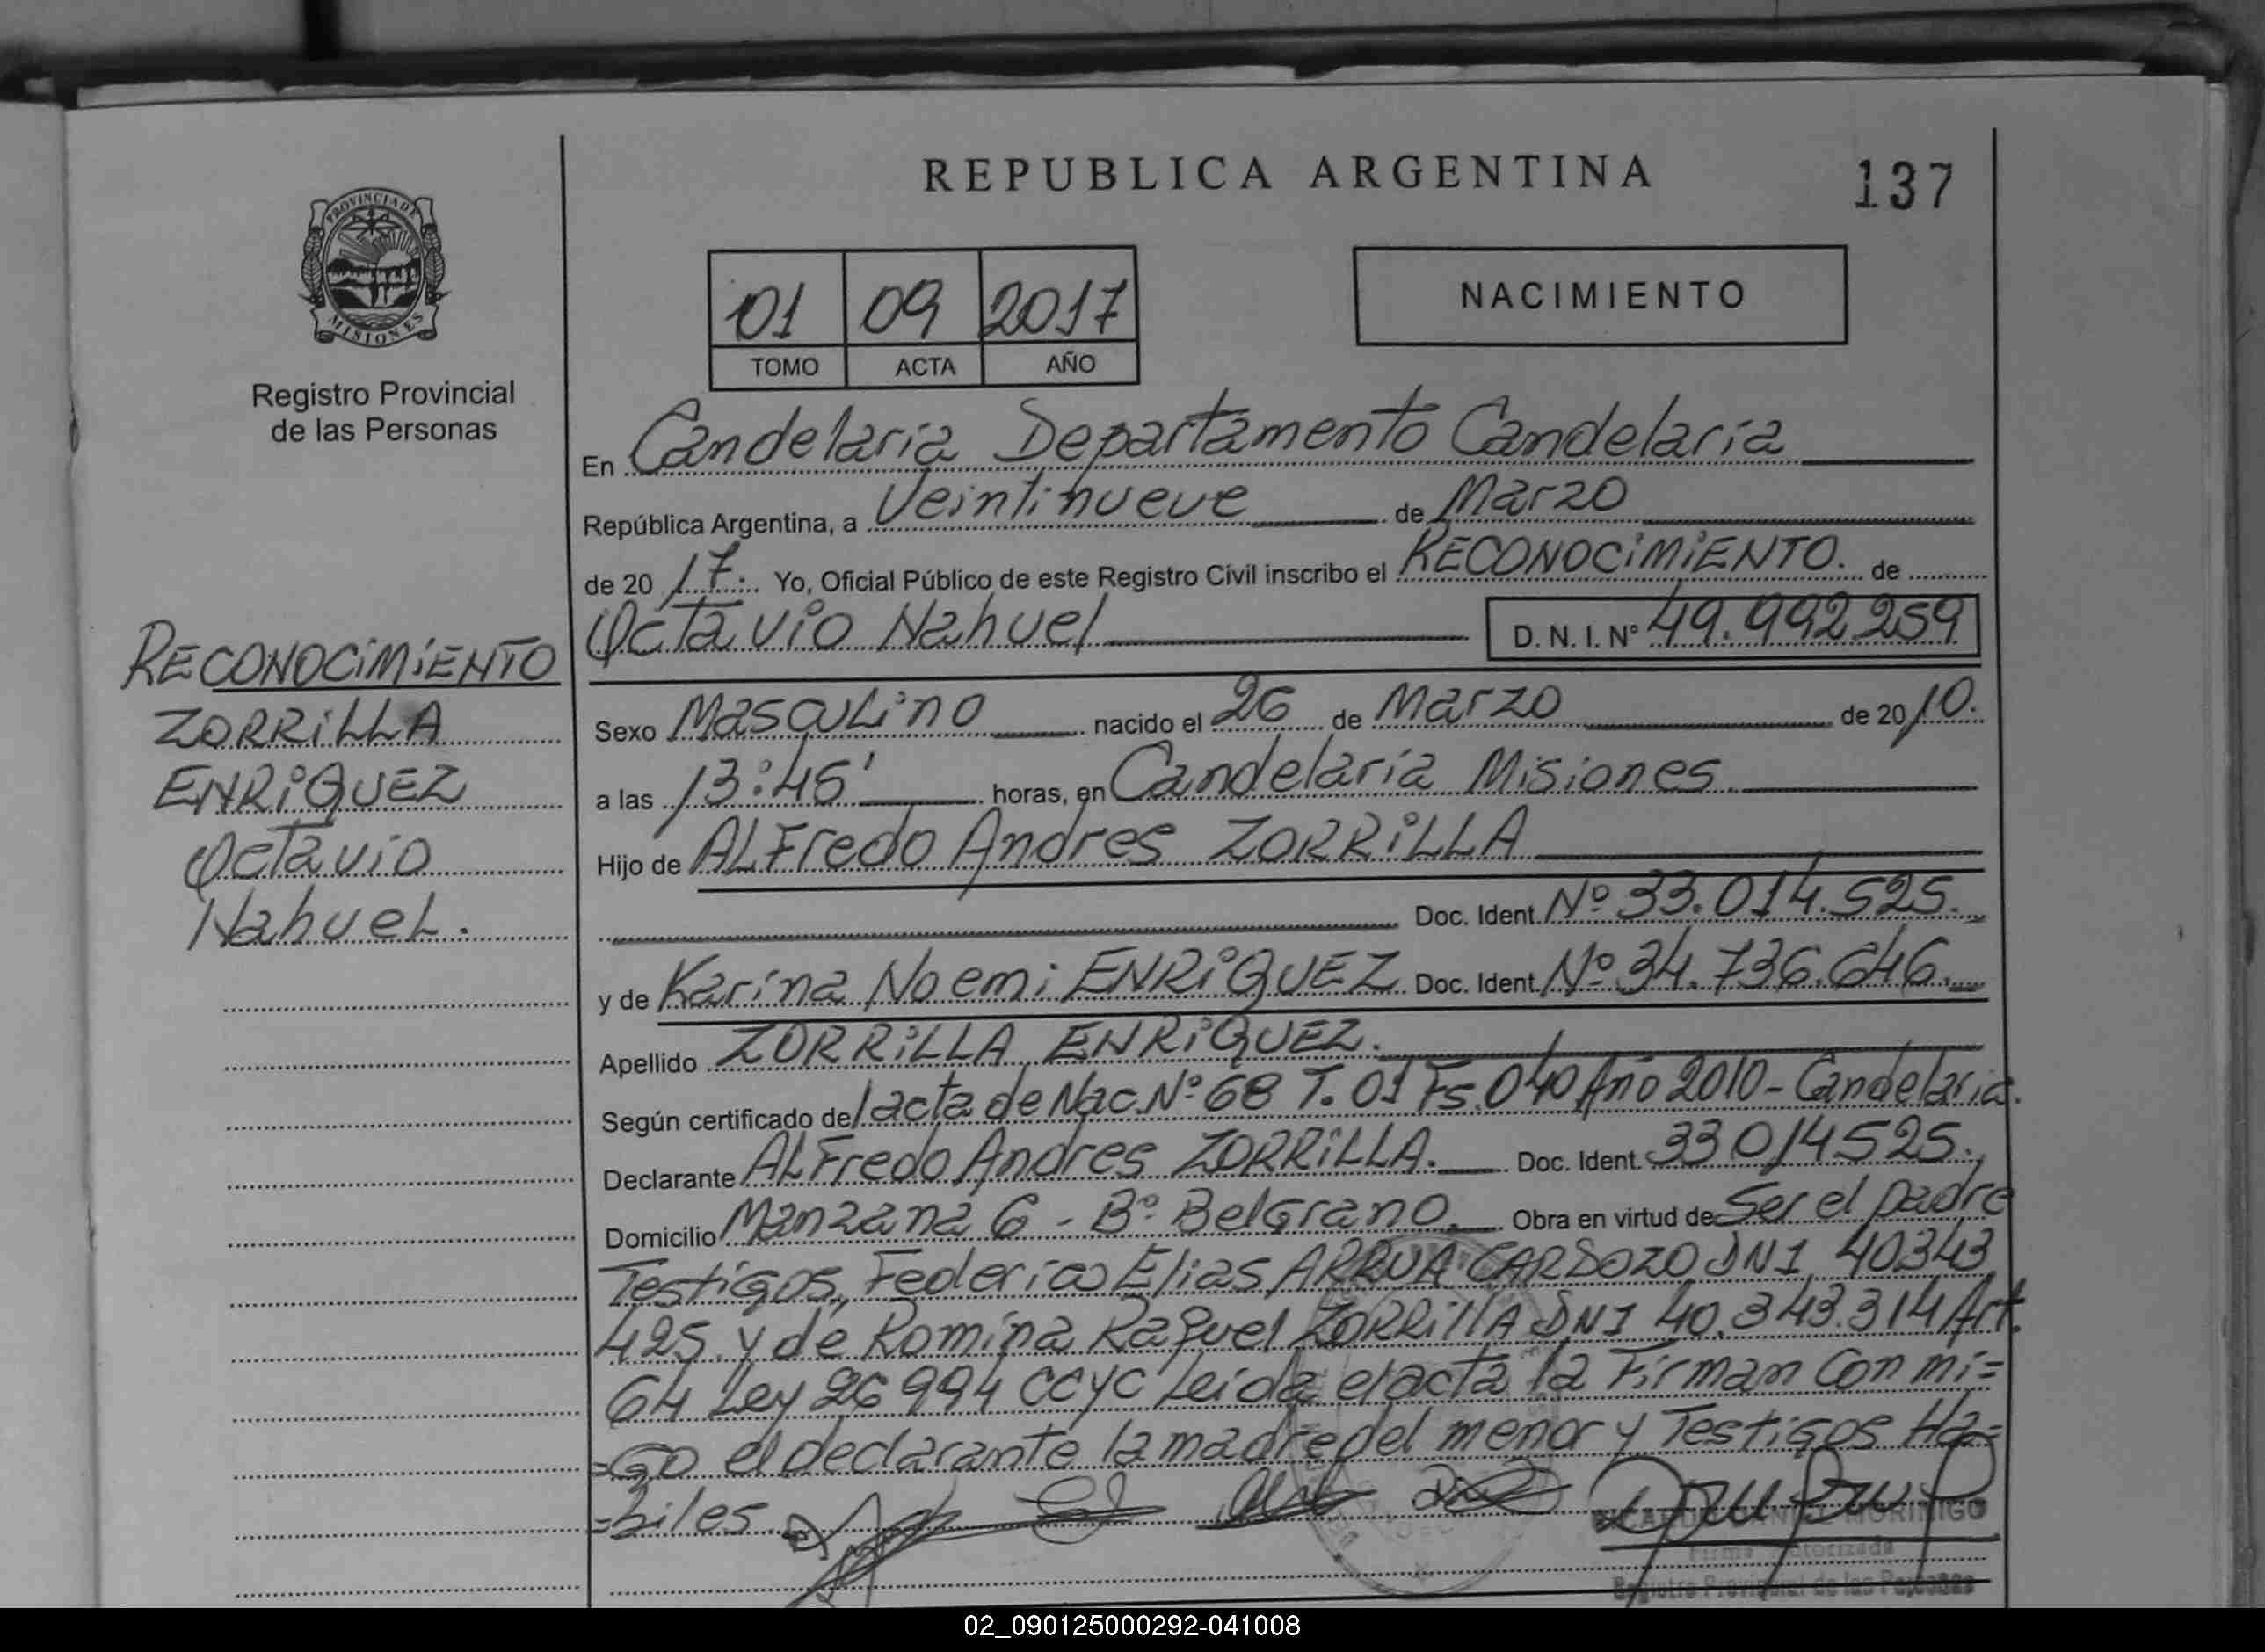 REPUBLICA ARGENTINA
137
PROVINCIA DE
MISIONES
Registro Provincial
de las Personas
01 09 2017
TOMO ACTA AÑO
NACIMIENTO
En Candelaria Departamento Candelaria
República Argentina, a Veintinueve de Marzo
de 2017. Yo, Oficial Público de este Registro Civil inscribo el RECONOCIMIENTO. de
Octavio Nahuel D. N. I. N° 49.992.259
RECONOCIMIENTO
ZORRILLA
ENRIQUEZ
Octavio
Nahuel.
Sexo Masculino nacido el 26 de Marzo de 2010.
a las 13:45' horas, en Candelaria Misiones
Hijo de ALFredo Andres ZORRILLA
Doc. Ident. Nº 33.014.525.
y de Karina Noemi ENRIQUEZ Doc. Ident. Nº 34.736.646.
Apellido ZORRILLA ENRIQUEZ.
Según certificado del acta de Nac. Nº 68 T. 01 Fs. 040 Año 2010 - Candelaria.
Declarante ALFredo Andres ZORRILLA. Doc. Ident. 33014525.
Domicilio Manzana 6 - Bº Belgrano. Obra en virtud de Ser el padre
Testigos, Federico Elias ARRUA CARDOZO DNI 40343
425 y de Romina Raquel ZORRILLA DNI 40.343.314 Art.
64 Ley 26994 CCYC Leida el acta la Firman Con mi=
=Go el declarante la madre del menor y Testigos Ha=
=biles
MORINIGO
Firma Autorizada
Registro Provincial de las Personas
02_090125000292-041008